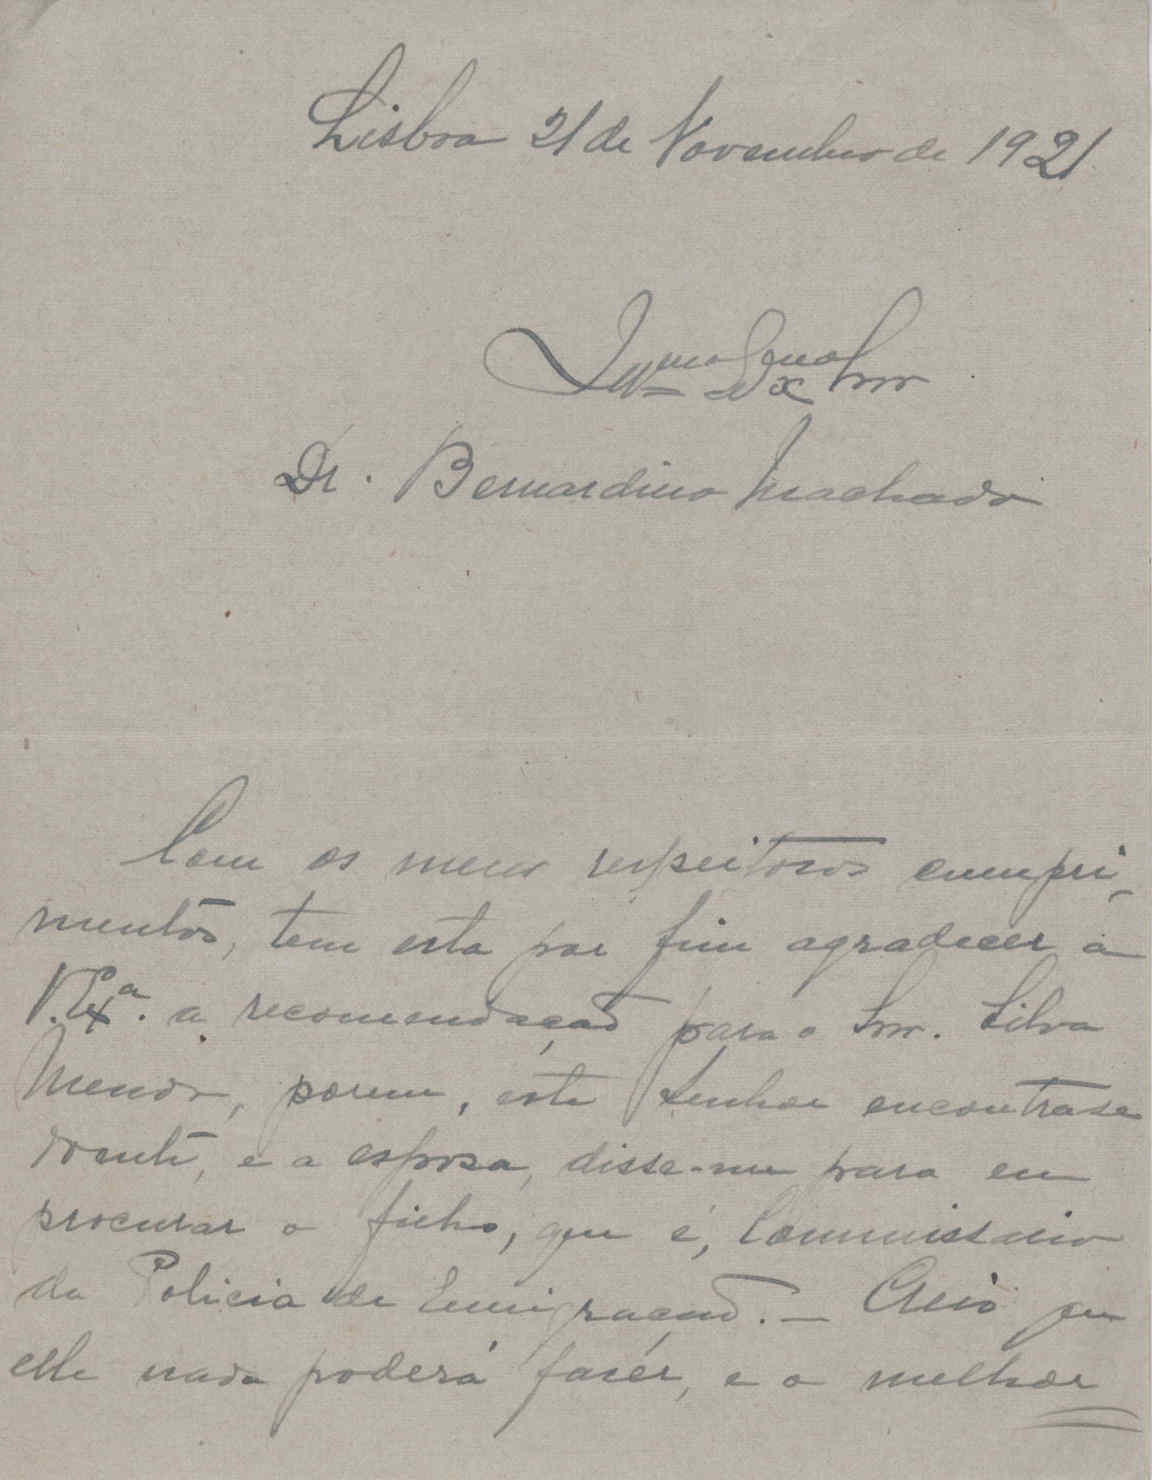 Lisboa 21 de Novembro de 1921
Illmo Exmo Snr
Dr. Bernardino Machado
Com os meus respeitosos cumpri-
mentos, tem esta por fim agradecer a
V. Exa. a recomendação para o Snr. Silva
Menor, porem, este Senhor encontra-se
doente, e a esposa, disse-me para eu
procurar o filho, que é, Commissario
da Policia de Emigração. — Creio que
elle nada poderá fazêr, e o melhor